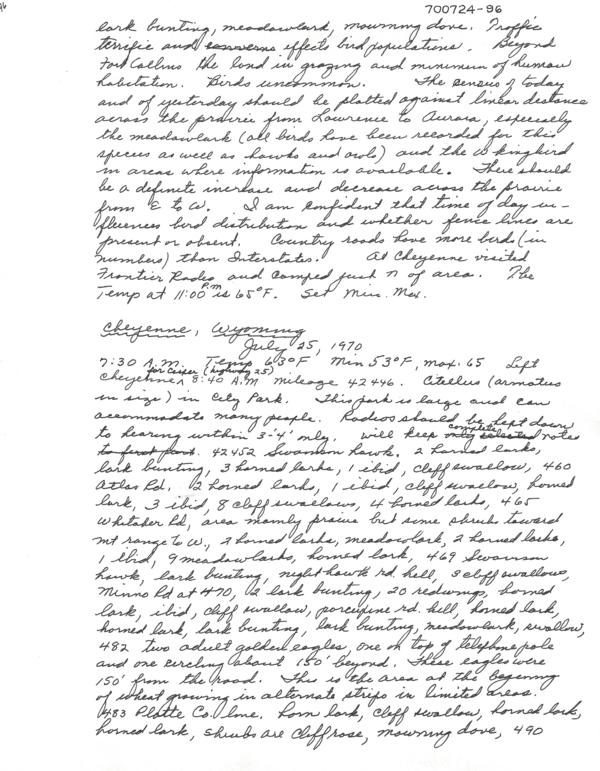 96
700724-96
lark bunting, meadowlark, mourning dove. Traffic
terrific and effects bird populations. Beyond
Fort Collins the land in grazing and minimum of human
habitation. Birds uncommon. The census of today
and of yesterday should be plotted against linear distance
across the prairie from Lawrence to Aurora, especially
the meadowlark (all birds have been recorded for this
species as well as hawks and owls) and the W kingbird
in areas where information is available. There should
be a definite increase and decrease across the prairie
from E to W. I am confident that time of day in-
fluences bird distribution and whether fence lines are
present or absent. Country roads have more birds (in
numbers) than Interstates. At Cheyenne visited
Frontier Rodeo and camped just n of area. The
Temp at 11:00 P.M is 65°F. Set Min. Max.
Cheyenne, Wyoming
July 25, 1970
7:30 A.M. Temp 63°F Min 53°F, max. 65 Left
Cheyenne for Casper (highway 25) 8:40 A.M mileage 42446. Citellus (armatus
in size) in City Park. This park is large and can
accommodate many people. Radios should be kept down
to hearing within 3'-4' only. Will keep complete notes
to first part. 42452 Swanson hawk. 2 horned larks,
lark bunting, 3 horned larks, 1 ibid, cliff swallow, 460
Atlas Rd. 2 horned larks, 1 ibid, cliff swallow, horned
lark, 3 ibid, 8 cliff swallows, 4 horned larks, 465
Whitaker Rd, area mainly prairie but some shrubs toward
mt range to W., 2 horned larks, meadowlark, 2 horned larks,
1 ibid, 9 meadowlarks, horned lark, 469 Swanson
hawk, lark bunting, nighthawk rd. kill, 3 cliff swallows,
Rd at 470, 2 lark bunting, 20 redwings, horned
lark, ibid, cliff swallow, porcupine rd. kill, horned lark,
horned lark, lark bunting, lark bunting, meadowlark, swallow,
482 two adult golden eagles, one on top of telephone pole
and one circling about 150' beyond. These eagles were
150' from the road. This is the area at the beginning
of wheat growing in alternate strips in limited areas.
483 Platte Co. line. horn lark, cliff swallow, horned lark,
horned lark, shrubs are cliffrose, mourning dove, 490